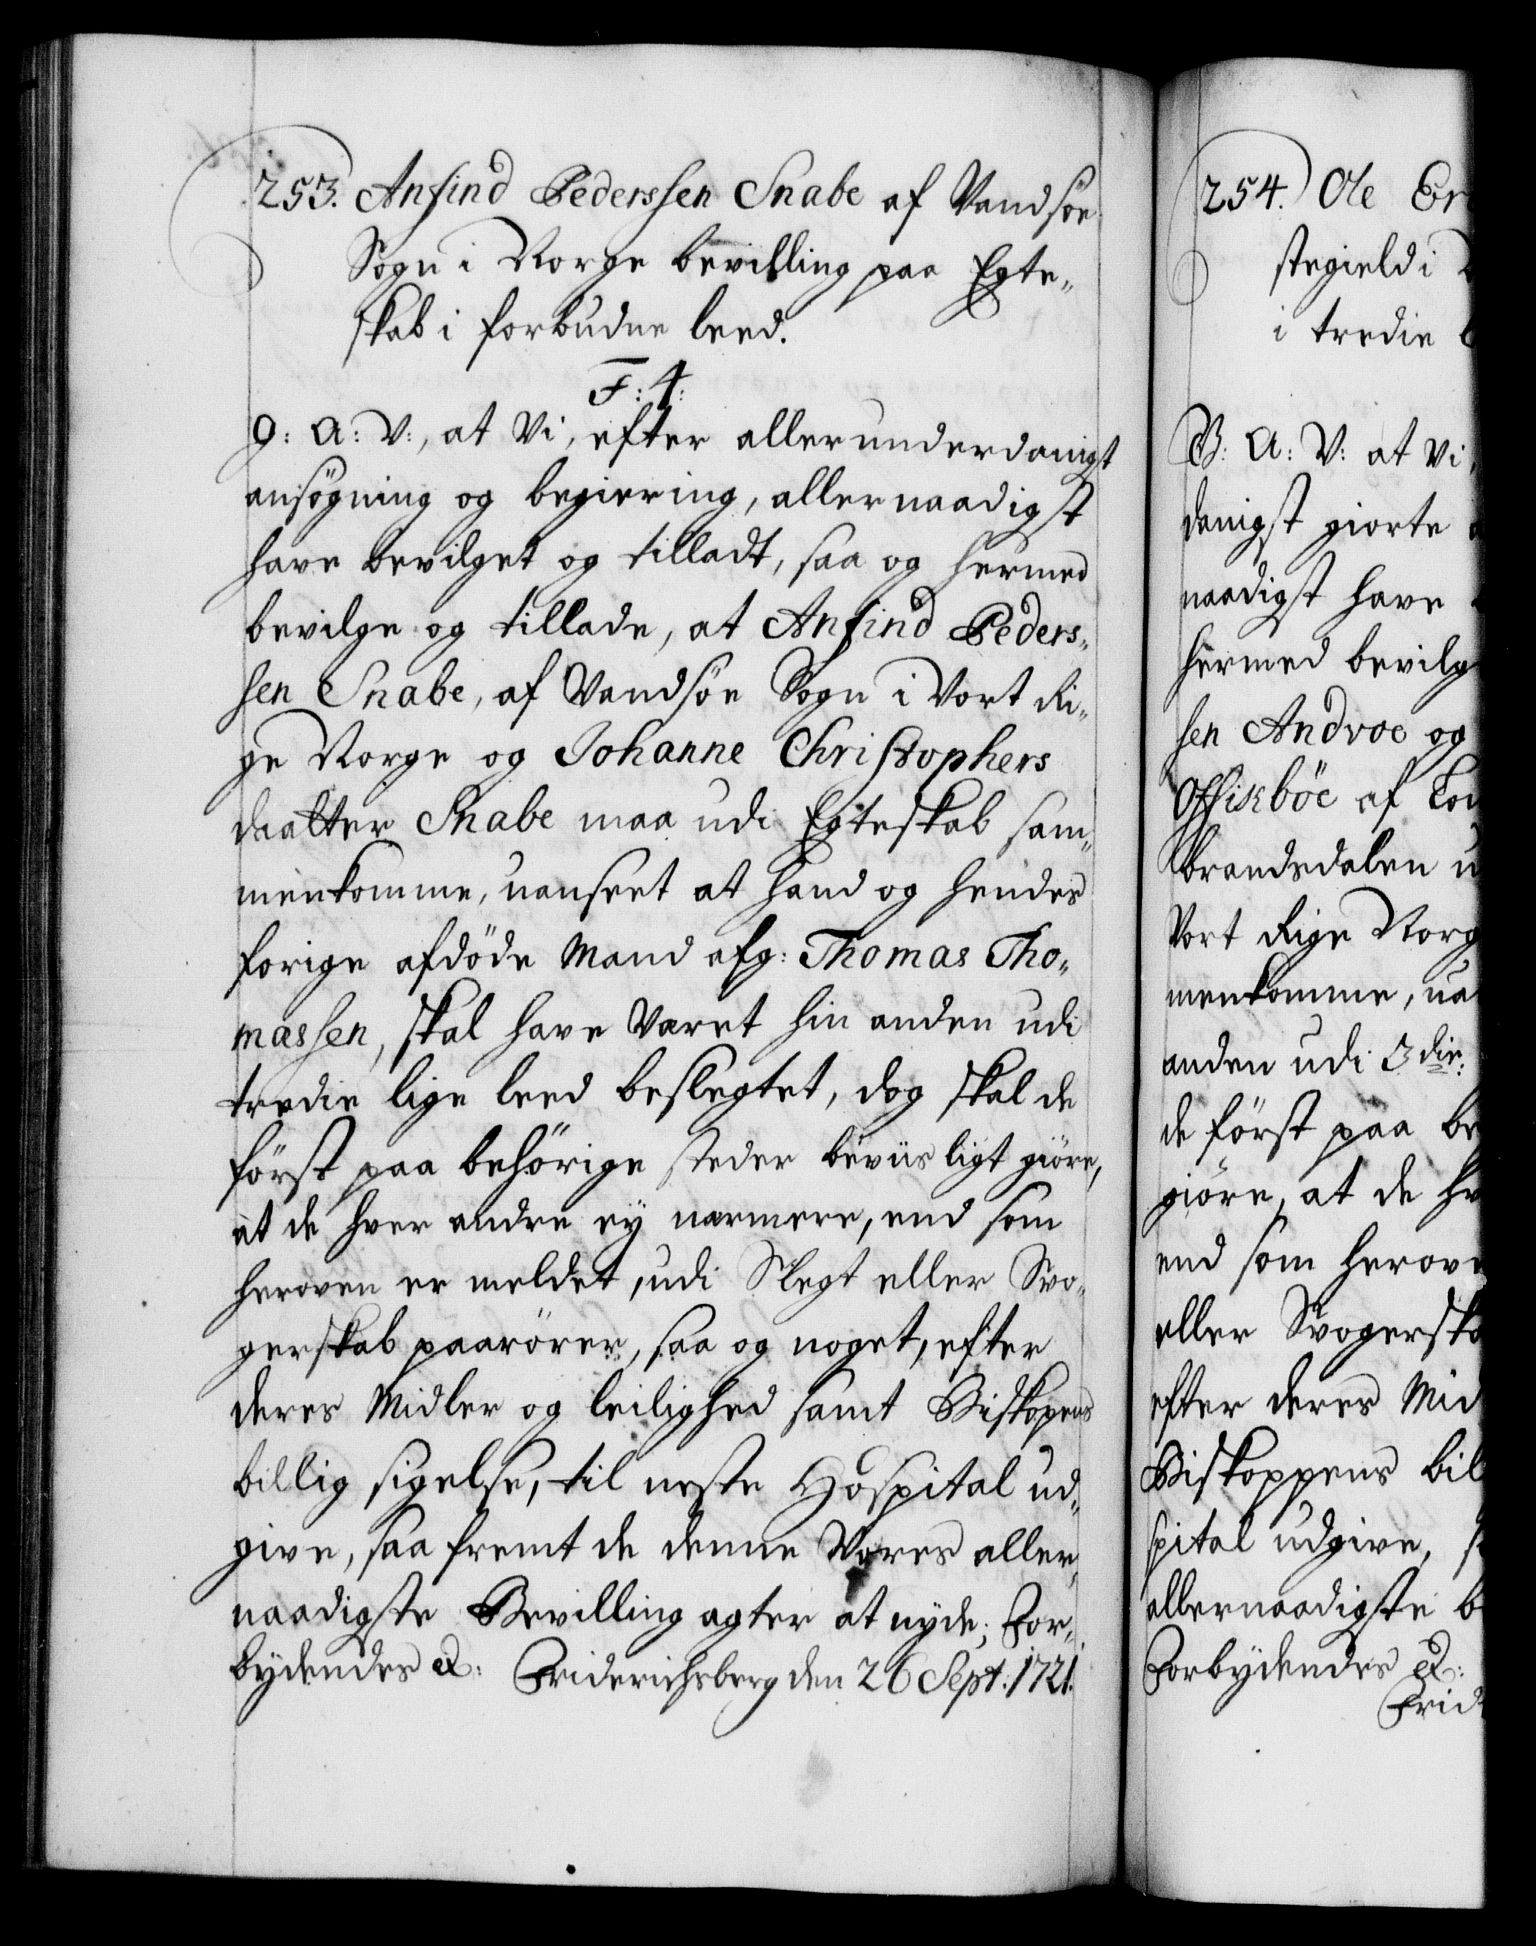 253. Anfind Pederssen Snabe af Vandsøe
Sogn i Norge bevilling paa Egte„
skab i forbudne leed.
F: 4:
G: A: V:, at Vi, efter allerunderdanigst
ansøgning og begiering, allernaadigst
have bevilget og tilladt, saa og hermed
bevilge og tillade, at Anfind Peders„
sen Snabe, af Vandsøe Sogn i Vort Ri„
ge Norge og Johanne Christophers
daatter Snabe maa udi Egteskab sam„
menkomme, uanseet at hand og hendes
forige afdøde Mand afg: Thomas Tho„
massen, skal have Været hin anden udi
tredie lige leed beslegtet, dog skal de
først paa behørige steder beviisligt giøre,
at de hver andre ey nærmere, end som
heroven er meldet, udi Slegt eller Svo„
gerskab paarører, saa og noget, efter
deres Midler og leilighed samt Biskopens
billig sigelse, til neste Hospital ud„
give, saa fremt de denne Vores aller„
naadigste Bevilling agter at nyde; For„
bydendes &: Friderichsberg den 26 Sept: 1721.
254. Ole
stegield i
i tredie
G: A: V: at Vi,
danigst giorte
naadigst have
hermed bevilg
sen Andvoe og
af
brandsdalen
Vort Rige Norg
menkomme, ua
anden udi 3die:
de først paa be
giøre, at de hv
end som herove
eller Svogerska
efter deres Mid
Biskoppens bil
spital udgive, s
allernaadigste b
Forbydendes &:
Frid